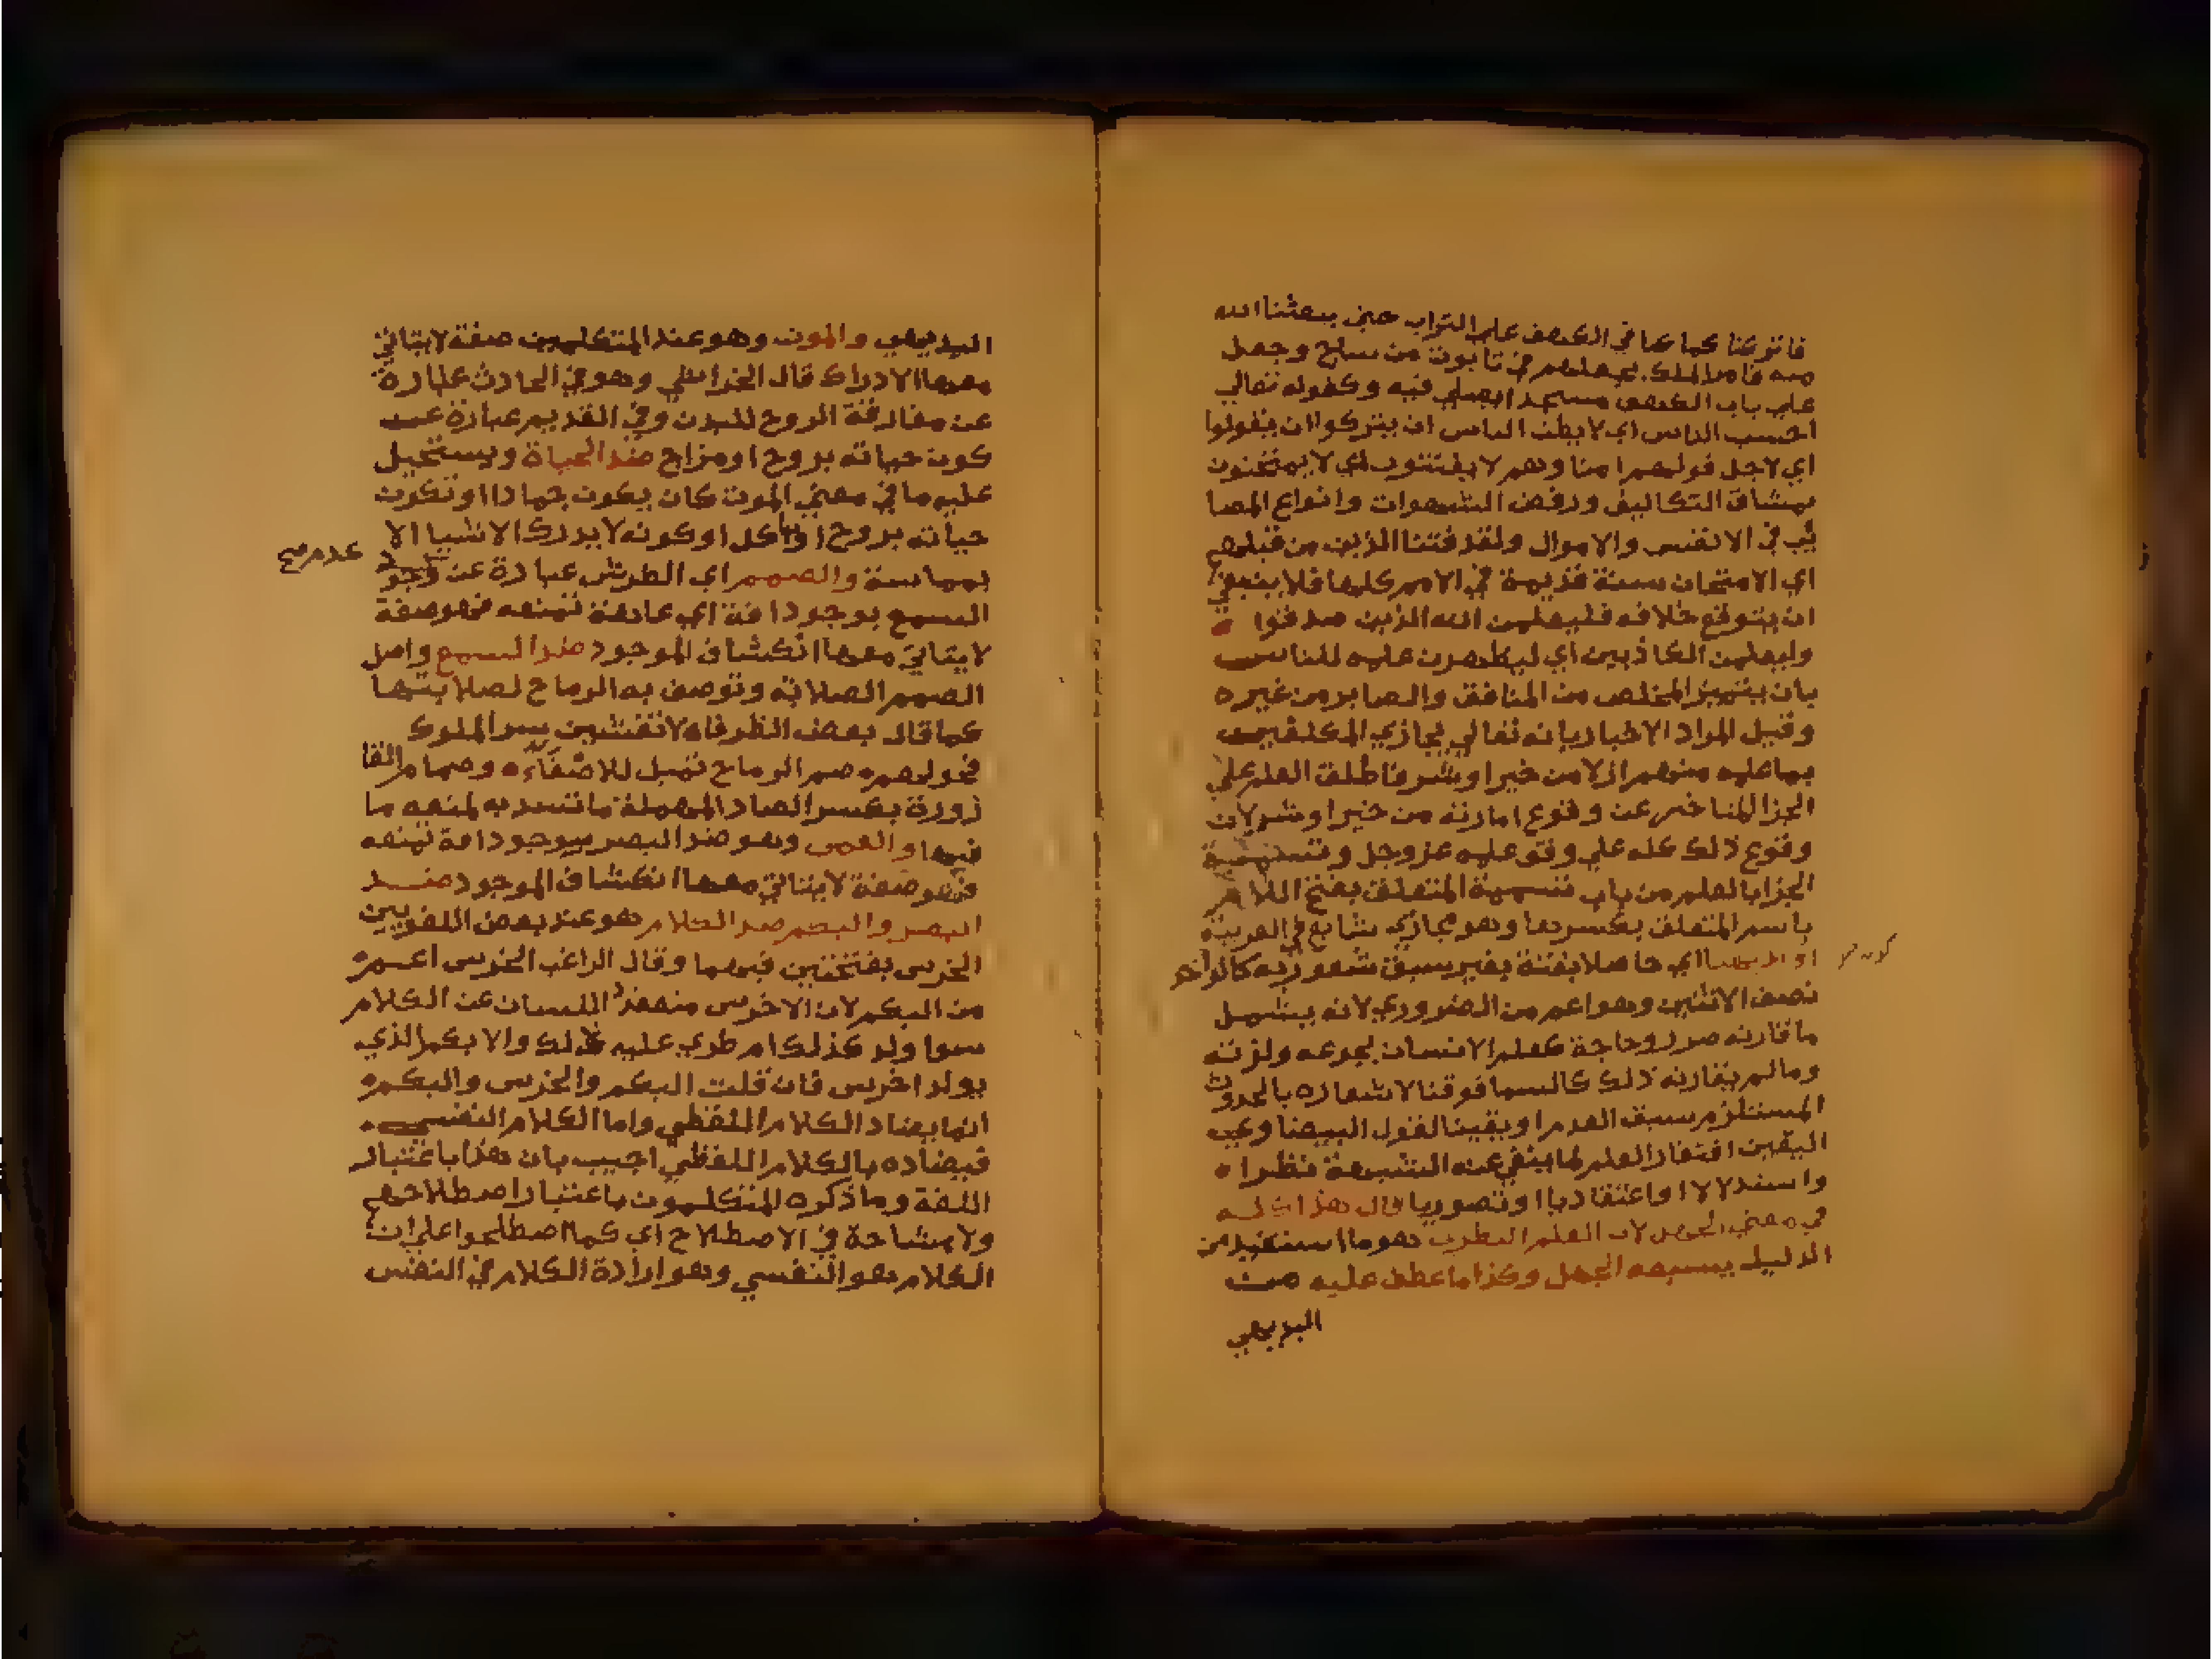 فاتركنا كما كنا في الكهف على التراب حتى يبعثنا الله
منه فامر الملك بجعلهم في تابوت من ساج وجعل
على باب الكهف مسجدا يصلي فيه وكقوله تعالى
احسب الناس اي لا يظن الناس ان يتركوا ان يقولوا
اي لاجل قولهم امنا وهم لا يفتنون اي لا يمتحنون
بمشاق التكاليف ورفض الشهوات وانواع المصا
يب في الانفس والاموال ولقد فتنا الذين من قبلهم
اي الامتحان سنة قديمة في الامم كلها فلا ينبغي
ان يتوقع خلافه فليعلمن الله الذين صدقوا
وليعلمن الكاذبين اي ليظهرن علمه للناس
بان يتميز المخلص من المنافق والصابر من غيره
وقيل المراد الاخبار بانه تعالى يجازي المكلفين
بما علمه منهم ازلا من خير او شر فاطلق العلم على
الجزا المتاخر عن وقوع امارته من خير او شر لان
وقوع ذلك علم على وقوعلمه عز وجل وتسمية
الجزا بالعلم من باب تسمية المتعلق بفتح اللام
باسم المتعلق بكسرها وهو مجازي شايع في العربية
او بديهيا اي حاصلا بغتة بغير سبق شعور به كالواحد
نصف الاثنين وهو اعم من الضروري لانه يشمل
ما قارنه ضرر وحاجة كعلم الانسان بجوعه ولذته
وما لم يقارنه ذلك كالسما فوقنا لاشعاره بالحدوث
المستلزم سبق العدم او يقينا لقول البيضاوي
اليقين اتقان العلم لما ينفي عنه الشبهة نظرا
واستدلالا او اعتقاديا او تصوريا قال هذا كله
في معنى الجهل لان العلم النظري هو ما استفيد من
الدليل يسبقه الجهل وكذا ما عطف عليه من
البديهي
البديهي والموت وهو عند المتكلمين صفة لا يتاتي
معها الادراك قال الخراشي وهو في الحادث عبارة
عن مفارقة الروح للبدن وفي القديم عبارة عن
كون حياته بروح او مزاج ضد الحياة ويستحيل
عليه ما في معنى الموت كان يكون جمادا او تكون
حياته بروح او اكل او كونه لا يدرك الاشيا الا
بمماسة والصمم اي الطرش عبارة عن وجود
عدم صح
السمع بوجود افة اي عاهة تمنعه فهو صفة
لا يتاتي معها انكشاف الموجود ضد السمع واصل
الصمم الصلابة وتوصف به الرماح لصلابتها
كما قال بعض الظرفاه لا تفشين سر الملوك
فحولهم صم الرماح تميل للاصغاء وصمام القا
زورة بكسر الصاد المهملة ما تسد به لمنعه ما
فيها والعمى وهو ضد البصر بوجود افة تمنعه
فهو صفة لا يتاتي معها انكشاف الموجود ضد
البصر والبكم ضد الكلام هو عند بعض اللغويين
الخرس بفتحتين فيهما وقال الراغب الخرس اعم
من البكم لان الاخرس منعقد اللسان عن الكلام
سوا ولد كذلك ام طري عليه ذلك والابكم الذي
يولد اخرس فان قلت البكم والخرس والبكم
انما يضاد الكلام اللفظي واما الكلام النفسي
فيضاده بالكلام اللفظي اجيب بان هذا باعتبار
اللغة وما ذكره المتكلمون باعتبار اصطلاحهم
ولا مشاحة في الاصطلاح اي كما اصطلحوا على ان
الكلام هو النفسي وهو ارادة الكلام في النفس